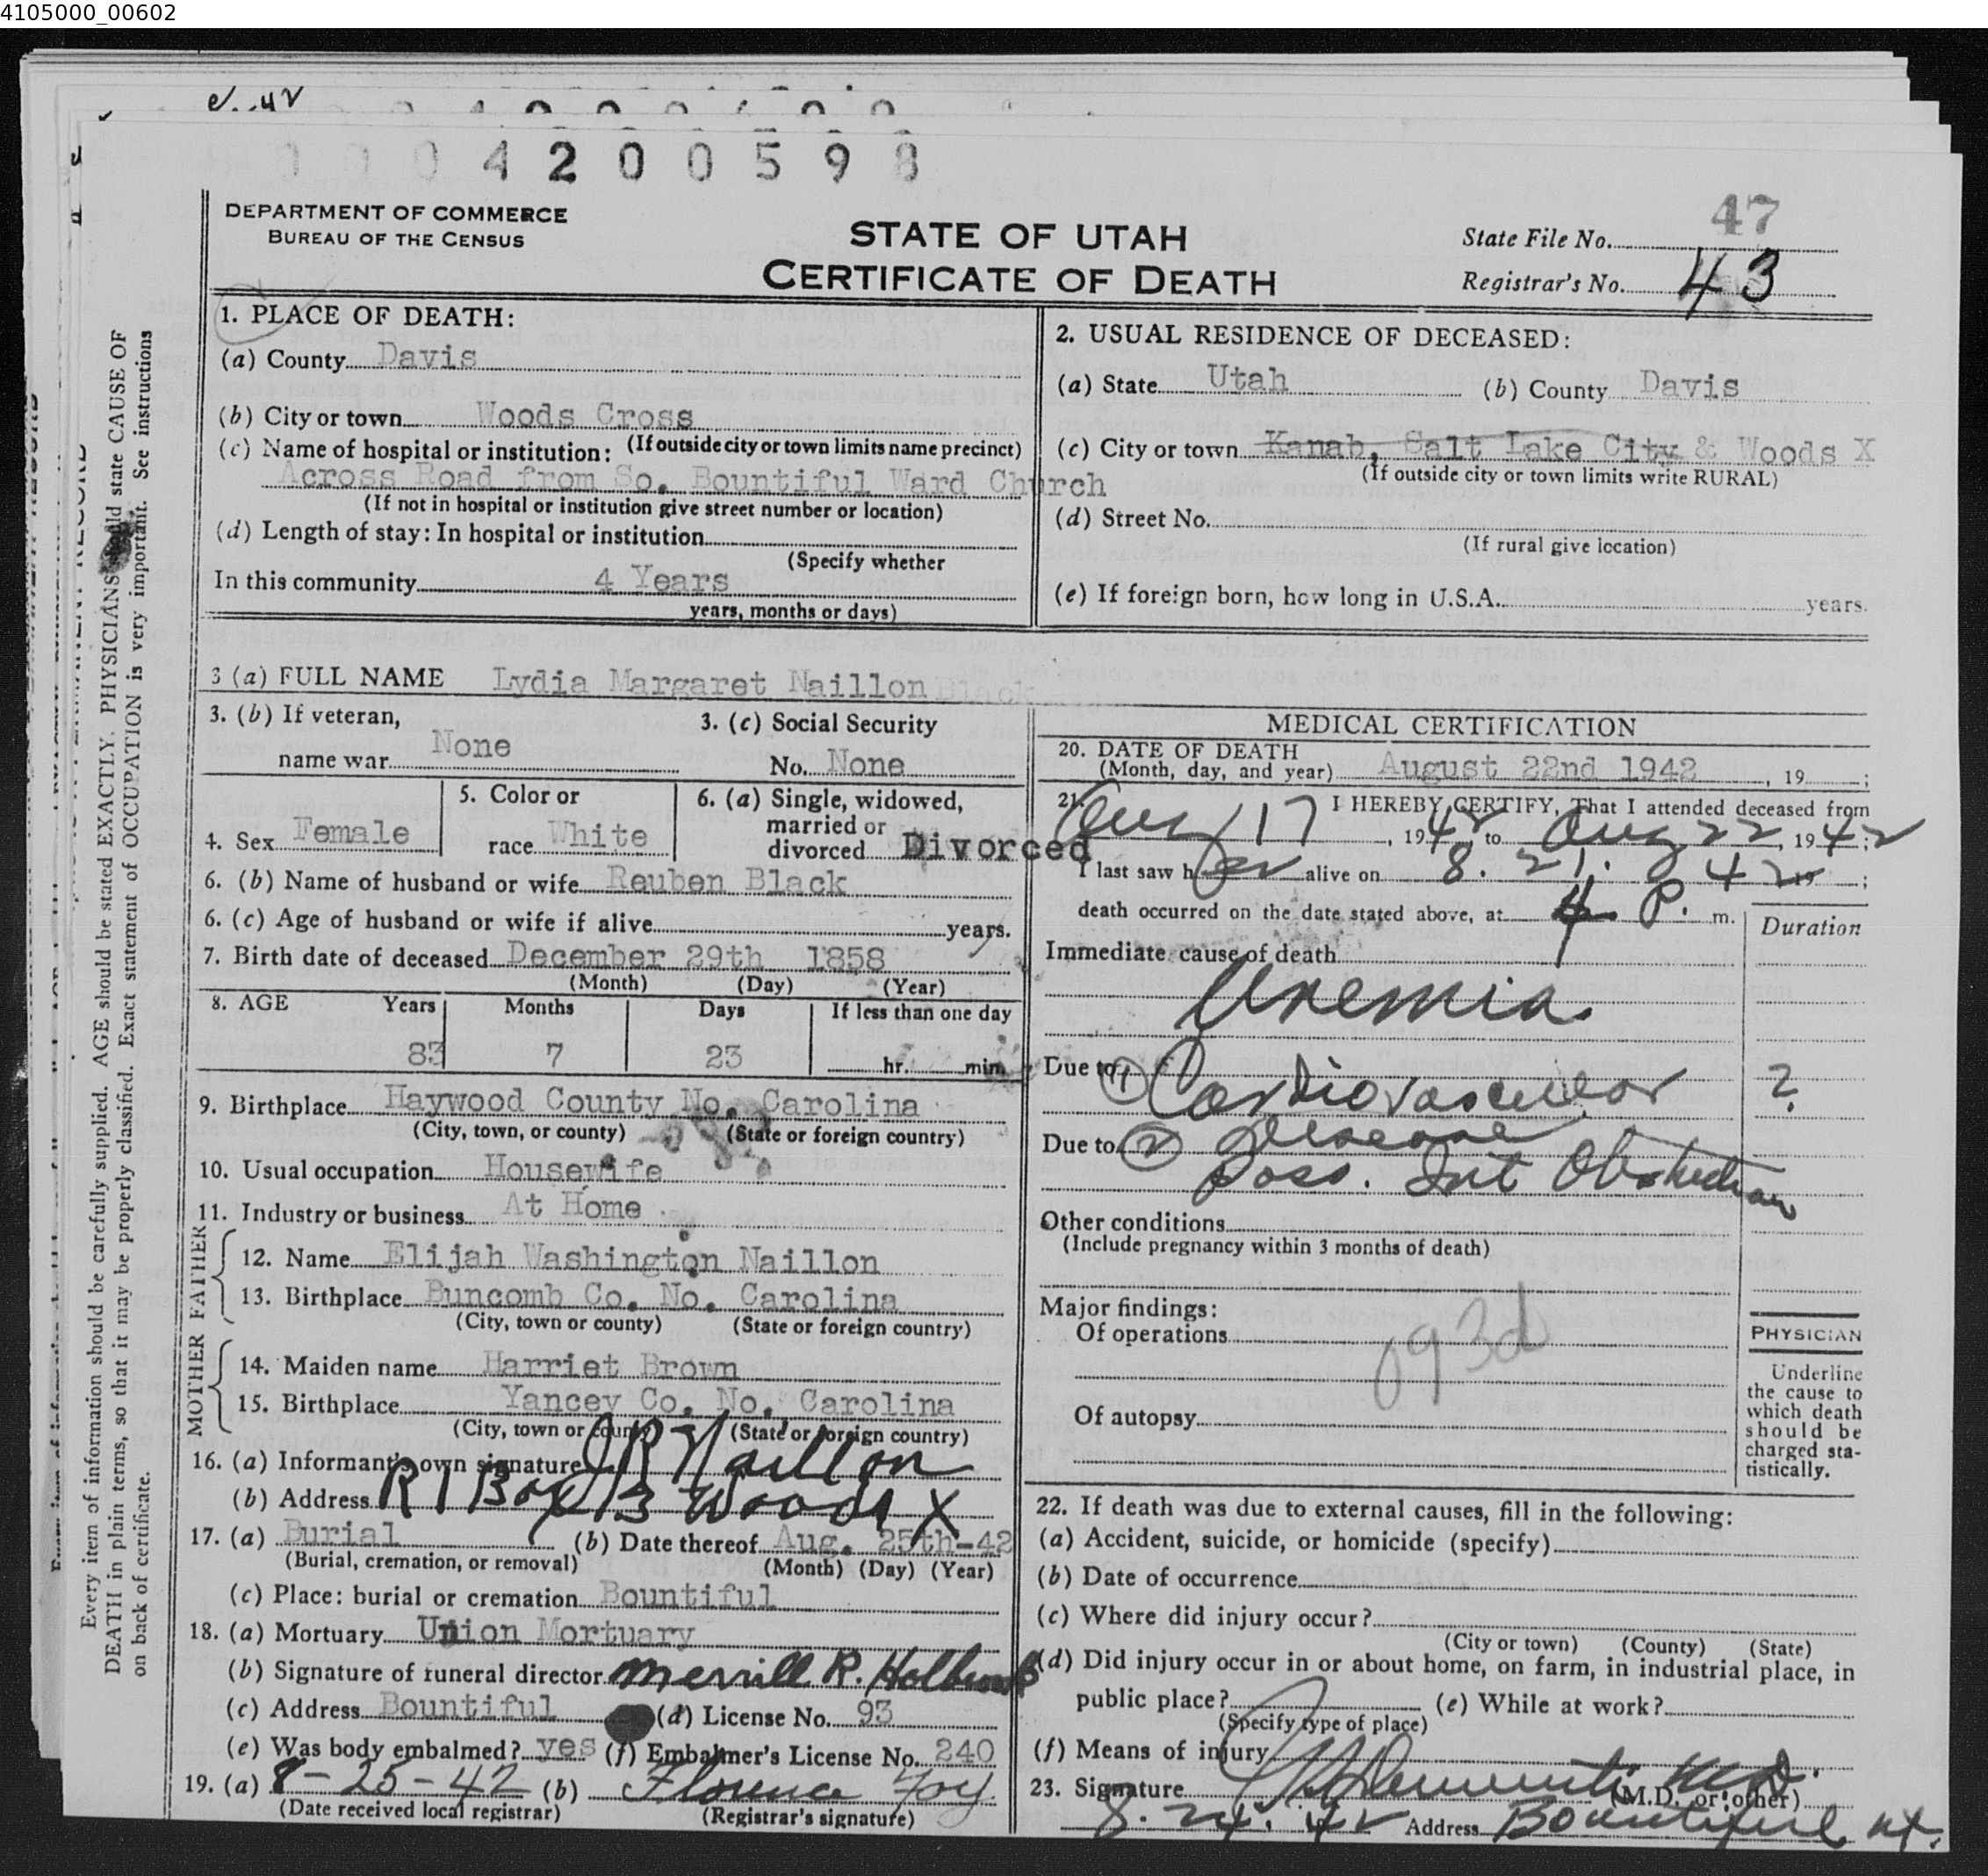 4105000_00602
0004200598
DEPARTMENT OF COMMERCE
BUREAU OF THE CENSUS
STATE OF UTAH
CERTIFICATE OF DEATH
State File No. 47
Registrar's No. 43
Every item of information should be carefully supplied. AGE should be stated EXACTLY. PHYSICIANS should state CAUSE OF
DEATH in plain terms, so that it may be properly classified. Exact statement of OCCUPATION is very important. See instructions
on back of certificate.
1. PLACE OF DEATH:
(a) County Davis
(b) City or town Woods Cross
(c) Name of hospital or institution: (If outside city or town limits name precinct)
Across Road from So. Bountiful Ward Church
(If not in hospital or institution give street number or location)
(d) Length of stay: In hospital or institution
(Specify whether
In this community 4 Years
years, months or days)
2. USUAL RESIDENCE OF DECEASED:
(a) State Utah (b) County Davis
(c) City or town Kanab, Salt Lake City & Woods X
(If outside city or town limits write RURAL)
(d) Street No.
(If rural give location)
(e) If foreign born, how long in U.S.A. years.
3 (a) FULL NAME Lydia Margaret Naillon Black
3. (b) If veteran,
name war None
3. (c) Social Security
No. None
4. Sex Female
5. Color or
race White
6. (a) Single, widowed,
married or
divorced Divorced
6. (b) Name of husband or wife Reuben Black
6. (c) Age of husband or wife if alive years.
7. Birth date of deceased December 29th 1858
(Month) (Day) (Year)
8. AGE Years Months Days If less than one day
83 7 23 hr. min.
9. Birthplace Haywood County No. Carolina
(City, town, or county) (State or foreign country)
10. Usual occupation Housewife
11. Industry or business At Home
FATHER
12. Name Elijah Washington Naillon
13. Birthplace Buncomb Co. No. Carolina
(City, town or county) (State or foreign country)
MOTHER
14. Maiden name Harriet Brown
15. Birthplace Yancey Co. No. Carolina
(City, town or county) (State or foreign country)
16. (a) Informant's own signature J R Naillon
(b) Address R 1 Box 13 Woods X
17. (a) Burial (b) Date thereof Aug. 25th-42
(Burial, cremation, or removal) (Month) (Day) (Year)
(c) Place: burial or cremation Bountiful
18. (a) Mortuary Union Mortuary
(b) Signature of funeral director Merrill R. Holbrook
(c) Address Bountiful (d) License No. 93
(e) Was body embalmed? yes (f) Embalmer's License No. 240
19. (a) 8-25-42 (b) Florence Foy
(Date received local registrar) (Registrar's signature)
MEDICAL CERTIFICATION
20. DATE OF DEATH
(Month, day, and year) August 22nd 1942, 19 ;
21. I HEREBY CERTIFY, That I attended deceased from
Aug 17, 1942 to Aug 22, 1942;
I last saw her alive on 8. 21. 42 19 ;
death occurred on the date stated above, at 4 P. m.
Duration
Immediate cause of death
Uremia
Due to (1) Cardiovascular ?
Disease
Due to (2) Poss. Int Obstruction
Other conditions
(Include pregnancy within 3 months of death)
Major findings:
Of operations
93d
Of autopsy
PHYSICIAN
Underline
the cause to
which death
should be
charged sta-
tistically.
22. If death was due to external causes, fill in the following:
(a) Accident, suicide, or homicide (specify)
(b) Date of occurrence
(c) Where did injury occur?
(City or town) (County) (State)
(d) Did injury occur in or about home, on farm, in industrial place, in
public place? (e) While at work?
(Specify type of place)
(f) Means of injury
23. Signature M.D. (M.D. or other)
8. 24. 42 Address Bountiful ut.